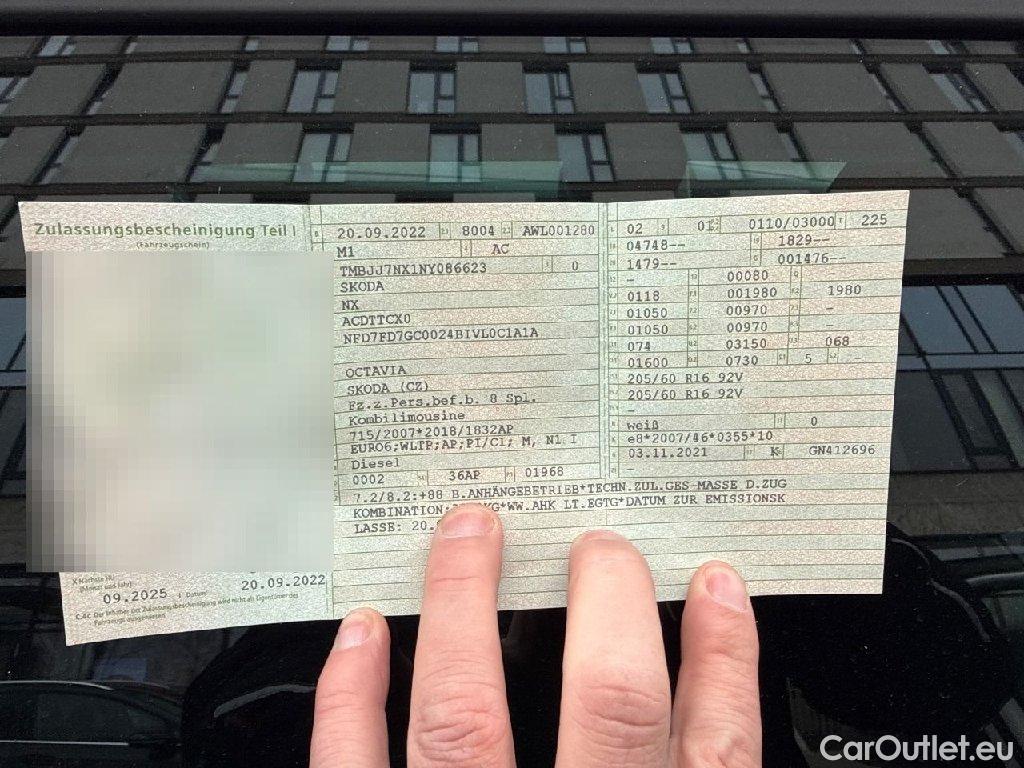 Zulassungsbescheinigung Teil I
(Fahrzeugschein)
20.09.2022 8004 AWL001280
M1 AC
TMBJJ7NX1NY086623 0
SKODA
NX
ACDTTCX0
NFD7FD7GC0024BIVL0C1A1A
OCTAVIA
SKODA (CZ)
Fz.z.Pers.bef.b. 8 Spl.
Kombilimousine
715/2007*2018/1832AP
EURO6;WLTP;AP;PI/CI; M, N1 I
Diesel
0002 36AP 01968
02 01 0110/03000 225
04748-- 1829--
1479-- 001476--
- 00080 -
0118 001980 1980
01050 00970 -
01050 00970 -
074 03150 068
01600 0730 5 --
205/60 R16 92V
205/60 R16 92V
-
weiß 0
e8*2007/46*0355*10
03.11.2021 K GN412696
-
7.2/8.2:+88 B.ANHÄNGEBETRIEB*TECHN.ZUL.GES MASSE D.ZUG
KOMBINATION: KG*WW.AHK LT.EGTG*DATUM ZUR EMISSIONSK
LASSE: 20.
(Monat und Jahr)
09.2025 I Datum 20.09.2022
C.4c Der Inhaber der Zulassungsbescheinigung wird nicht als Eigentümer des
Fahrzeugs ausgewiesen.
CarOutlet.eu